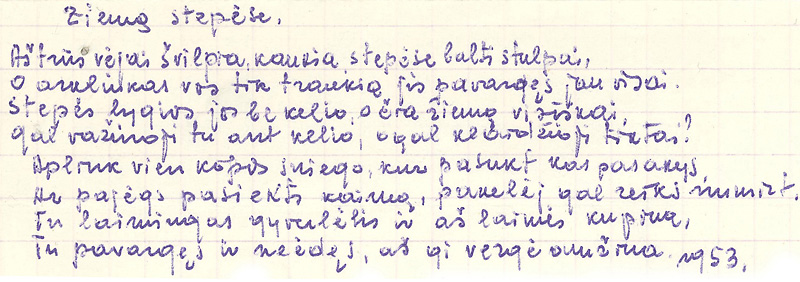 Žiemą stepėse.
Aštrūs vėjai švilpia, kaukia stepėse balti stulpai,
O arkliukas vos tik traukia, jis pavargęs jau visai.
Stepės lygios, jos be kelio, o čia žiemą visiškai,
gal važinoji tu ant kelio, o gal klaidžioji tiktai?
Aplink vien kopos sniego, kur pasukt kas pasakys,
Ar pajėgs pasiekti kaimą, pakelėj gal reiks numirt.
Tu laimingas gyvulėlis ir aš laimės kupina,
Tu pavargęs ir neėdęs, aš gi vergė amžina. 1953.